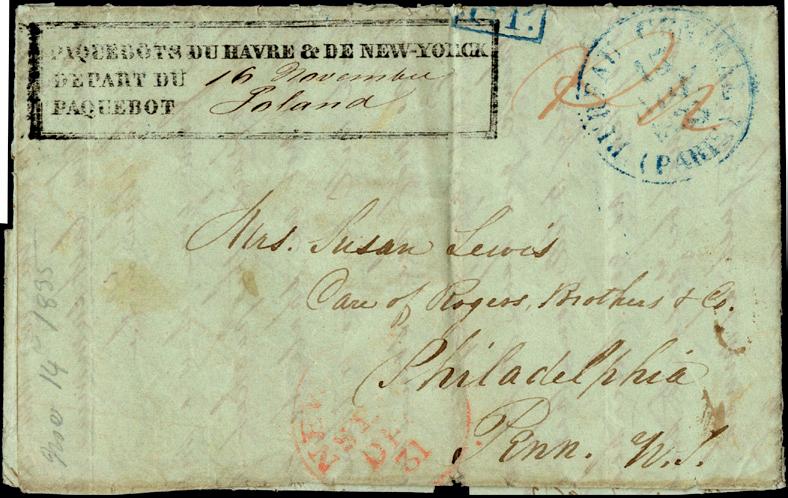 PAQUEBOTS DU HAVRE & DE NEW-YORCK
DEPART DU 16 November
PAQUEBOT Poland
BUREAU CENTRAL
(PARIS)
Mrs. Susan Lewis
Care of Rogers, Brothers & Co.
Philadelphia
Penn. U.S.
Nov 14 1835
NEW
DEC
31